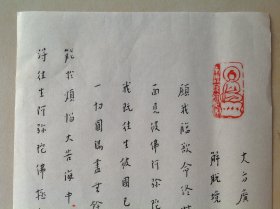 大方廣
解脫境
願我臨欲命終時
面見彼佛阿彌陀
我既往生彼國已
一切圓滿盡無餘
能於煩惱大苦海中
得往生阿彌陀佛極